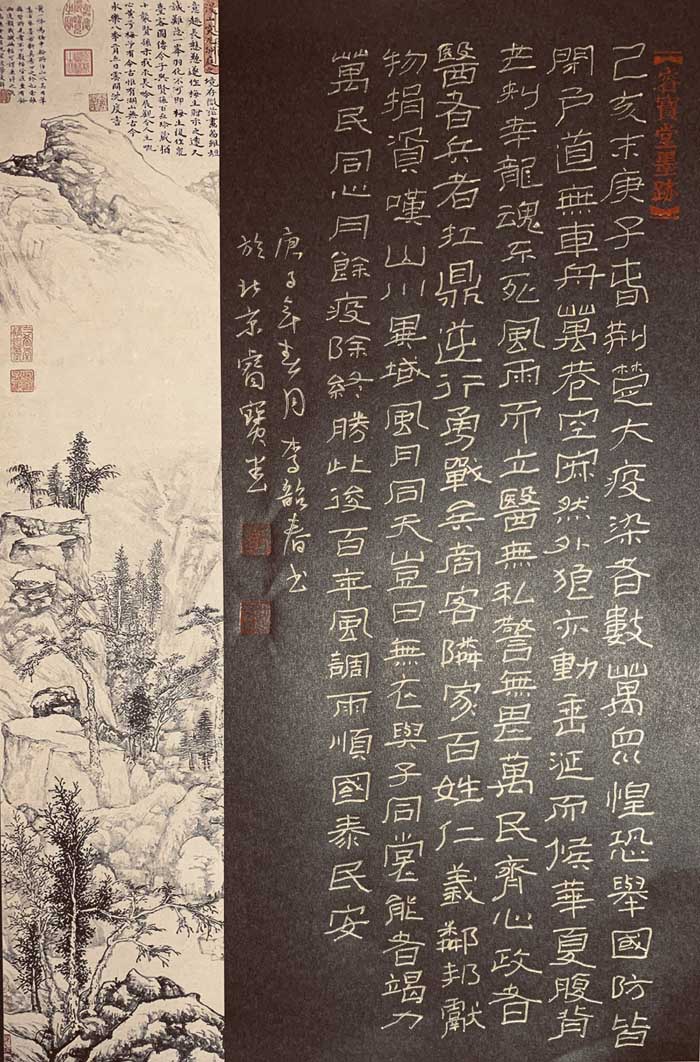 【容寶堂墨跡】
己亥末庚子春荆楚大疫染者數萬眾惶恐舉國防皆
閉戶道無車舟萬巷空寂然外狼亦動垂涎而候華夏腹背
芒刺幸龍魂不死風雨而立醫無私警無畏萬民齊心政者
醫者兵者扛鼎逆行勇戰矣商客隣家百姓仁義鄰邦獻
物捐資嘆山川異域風月同天豈曰無衣與子同裳能者竭力
萬民同心月餘疫除終勝此後百年風調雨順國泰民安
庚子年春月 李韶春书
於北京容寶堂
惟有湖山無古今
雲間沈度書